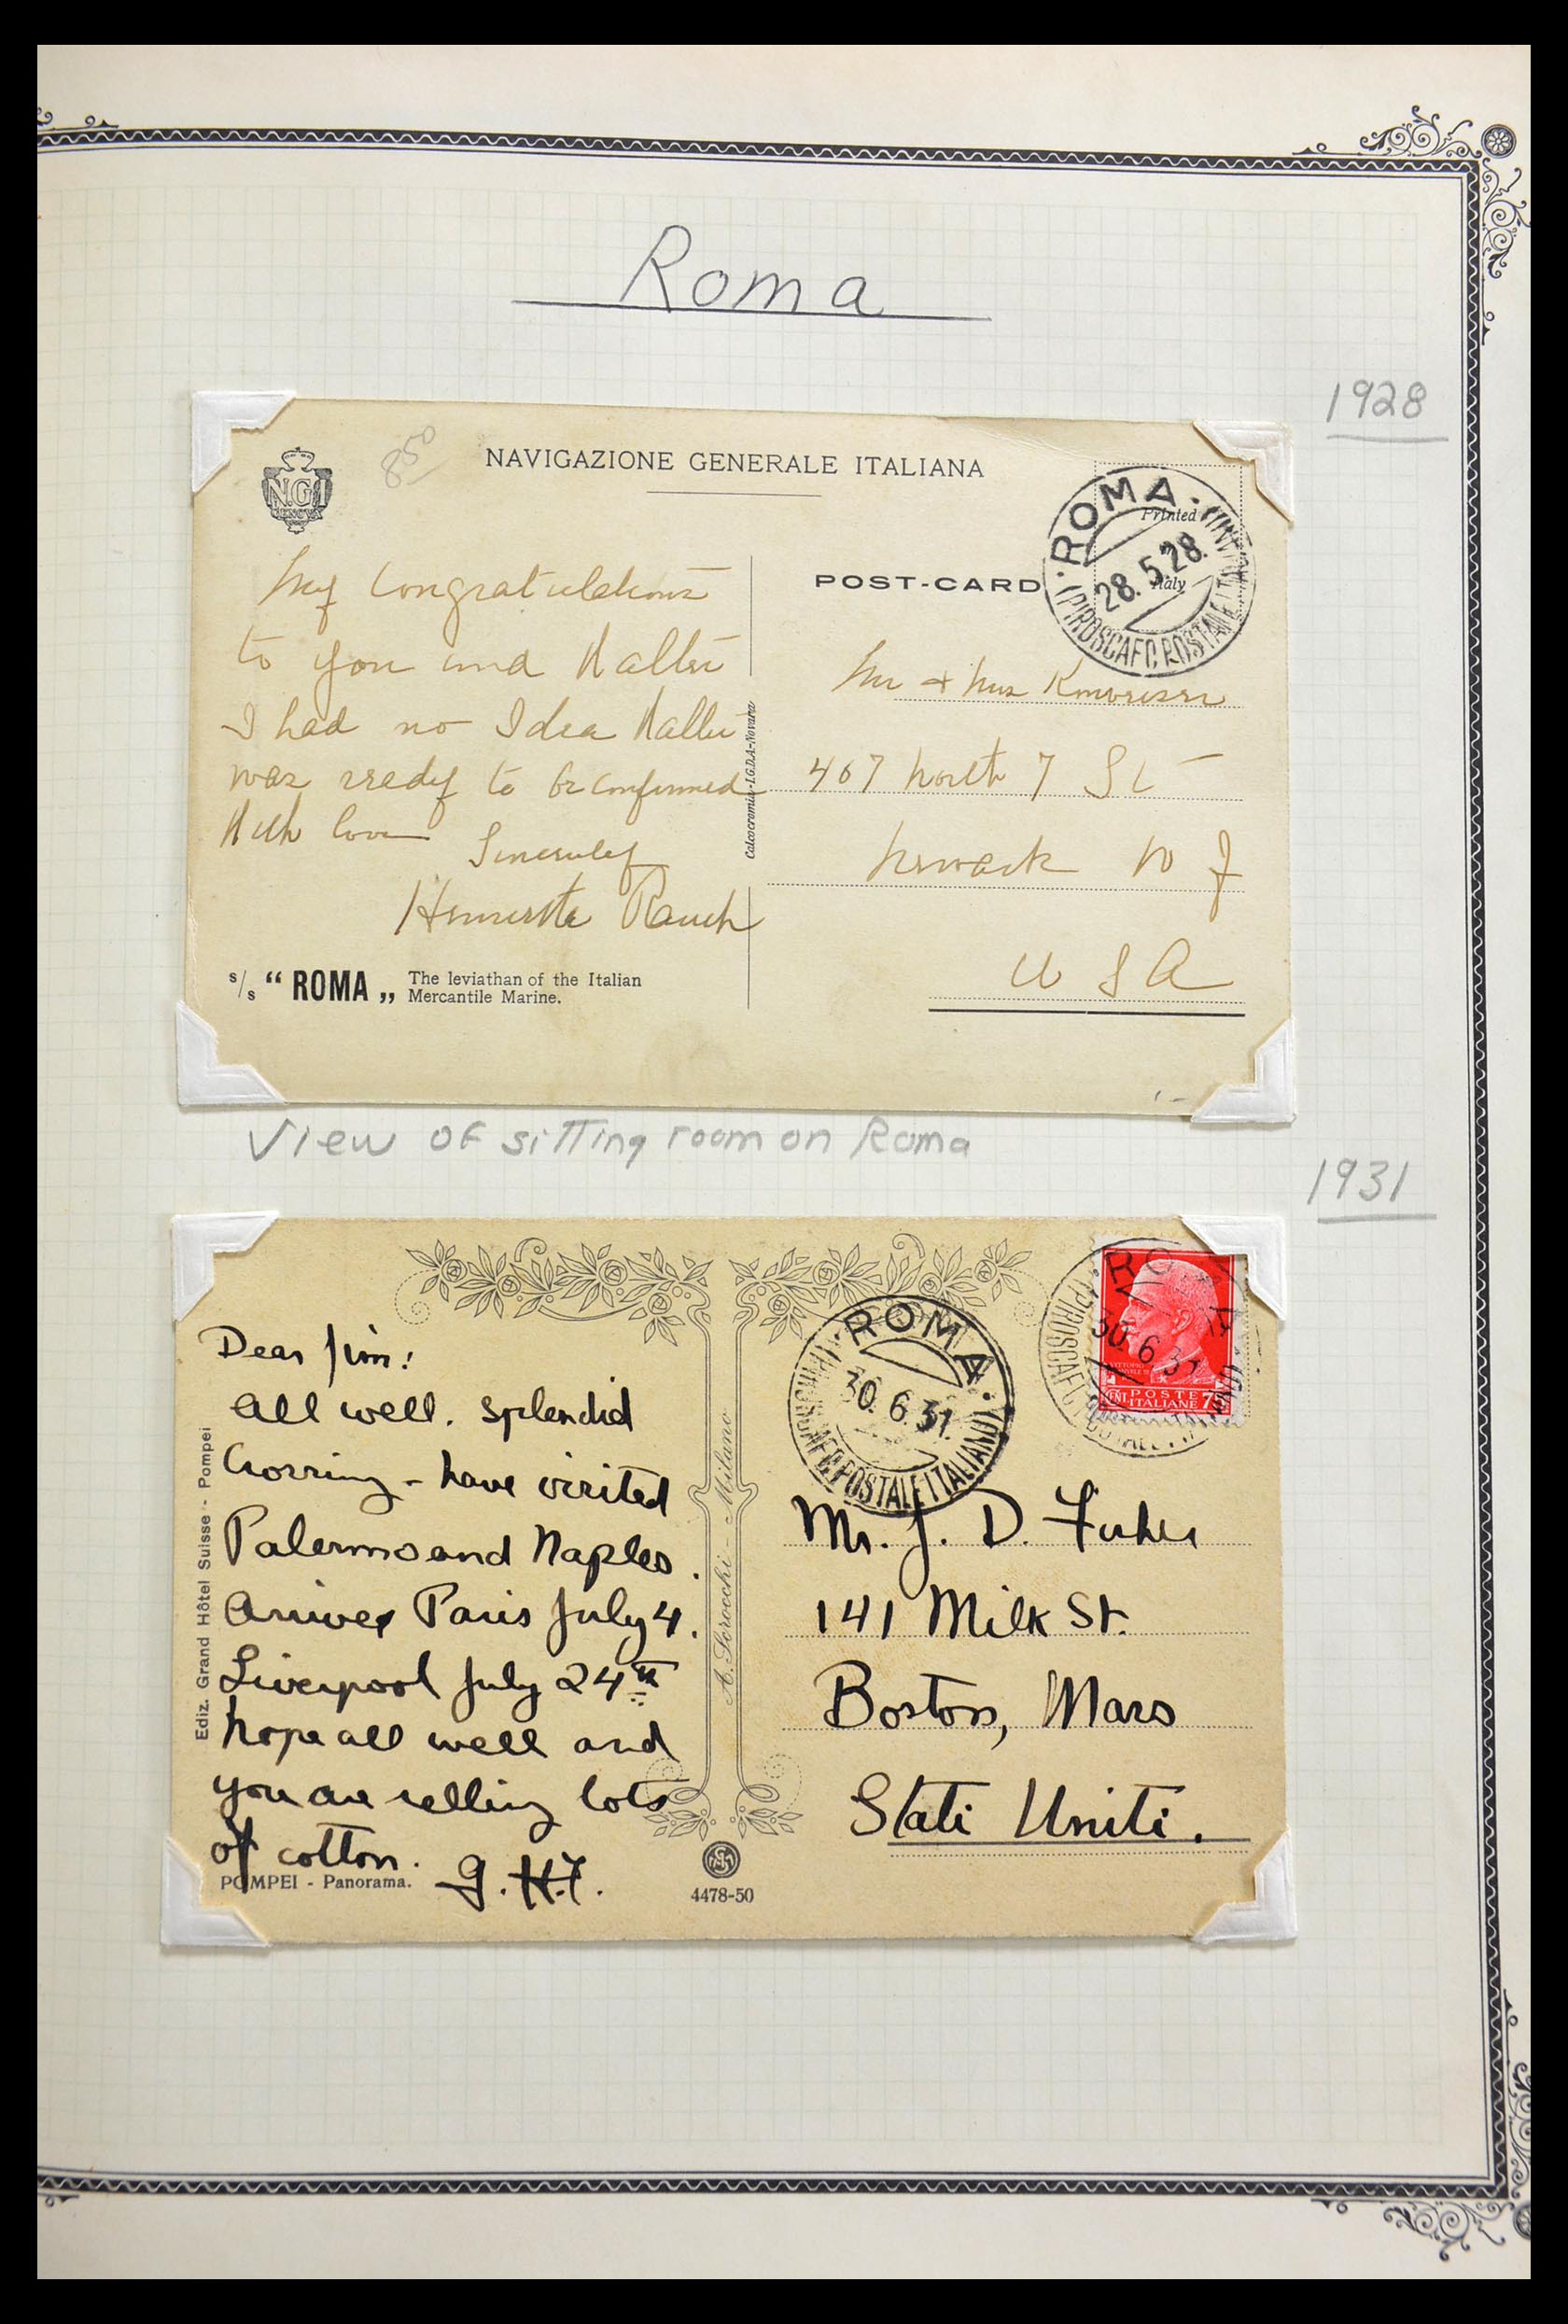 Roma
1928
N.G.I
GENOVA
850
NAVIGAZIONE GENERALE ITALIANA
Printed
Italy
ROMA
28.5.28.
(PIROSCAFO POSTALE ITALIANO)
POST-CARD
My Congratulations
to you and Walter
I had no Idea Walter
was ready to be confirmed
With love
Sincerely
Rauch
Calcocromia-I.G.D.A.-Novara
s/s “ ROMA „ The leviathan of the Italian
Mercantile Marine.
Mr + Mrs
467 North 7 St
Newark N J
U S A
View of sitting room on Roma
1931
ROMA
30.6.31
(PIROSCAFO POSTALE ITALIANO)
ROMA
30.6.31
(PIROSCAFO POSTALE ITALIANO)
VITTORIO
POSTE
ITALIANE
CENT 75
Dear Jim:
All well. splendid
Crossing - have visited
Palermo and Naples.
Arrives Paris July 4.
Liverpool July 24th
hope all well and
you are selling lots
of cotton.
G.H.F.
Ediz. Grand Hôtel Suisse - Pompei
A. Scrocchi - Milano
POMPEI - Panorama.
4478-50
Mr. J. D. Fisher
141 Milk St.
Boston, Mass
Stati Uniti.